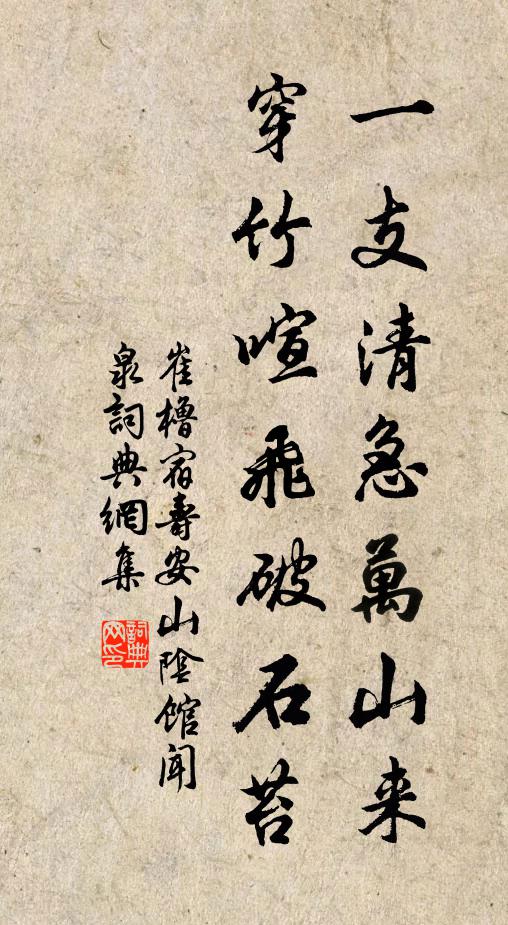 一支清急萬山来
穿竹喧飛破石苔
崔櫓宿壽安山陰館聞
泉詞典網集
詞典
网印